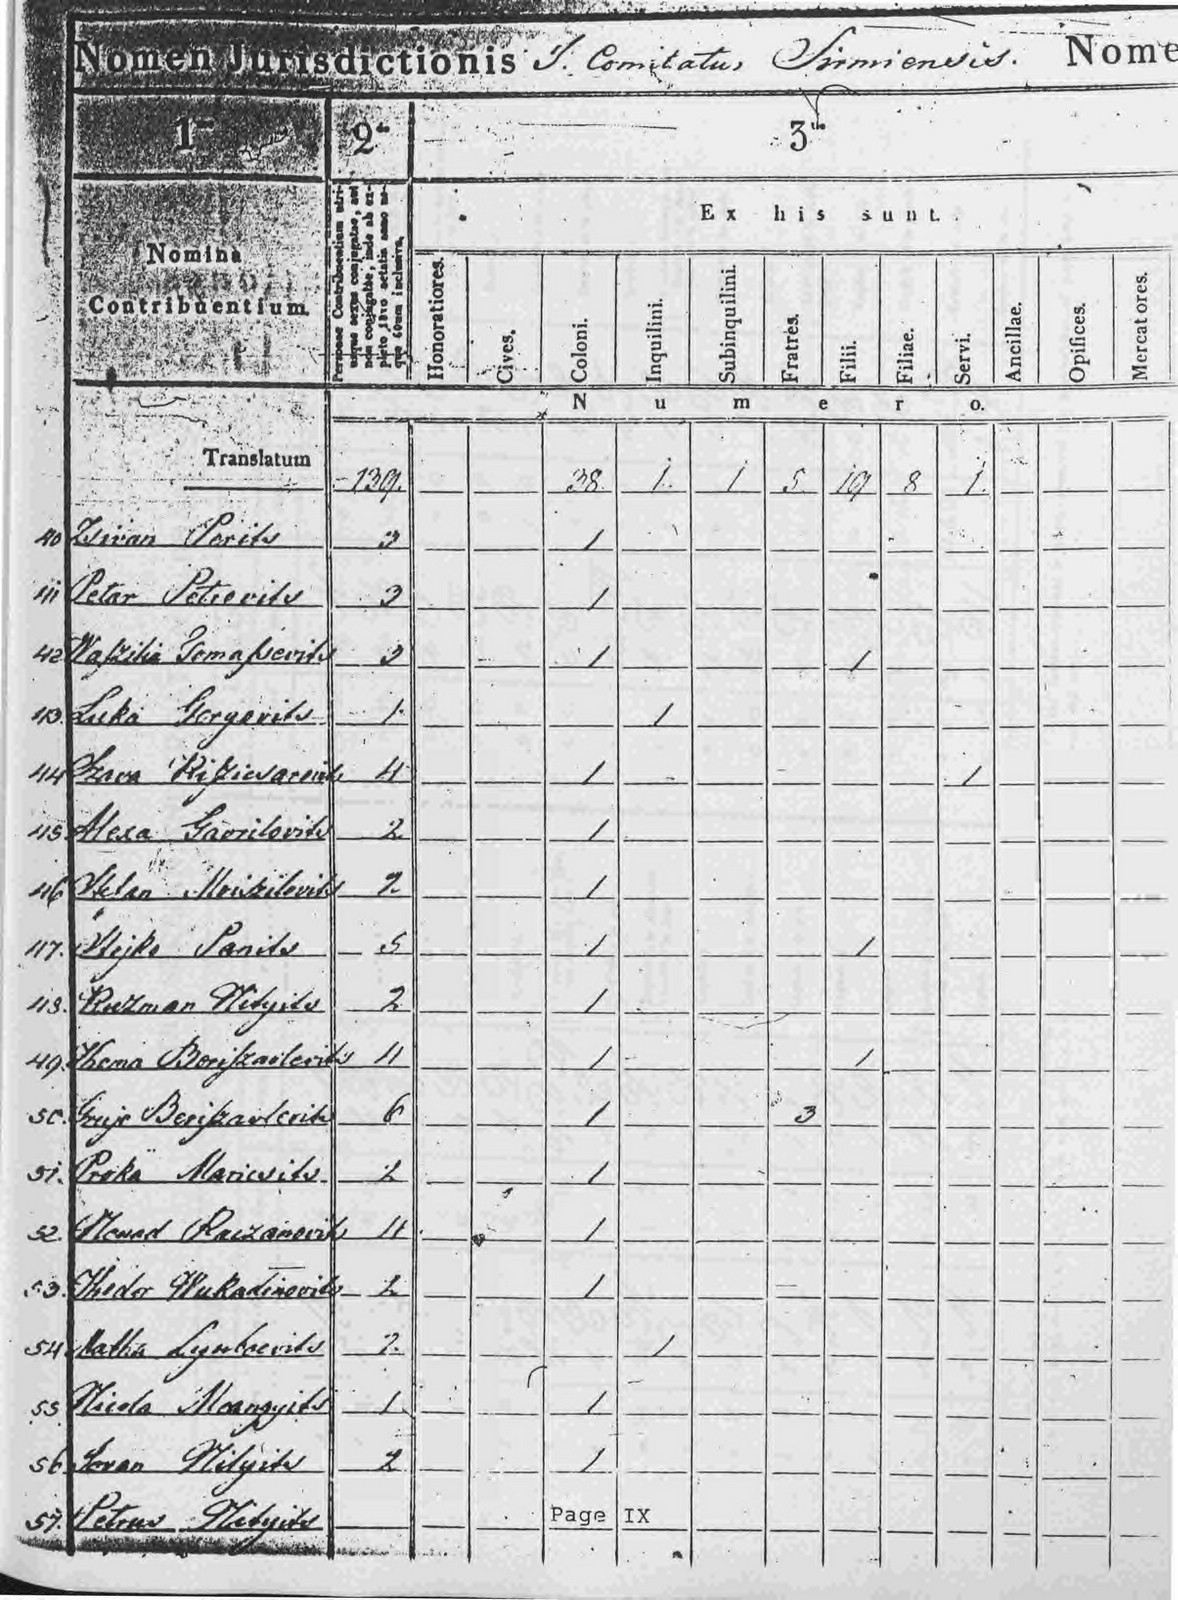 Nomen Jurisdictionis I. Comitatus Sirmiensis. Nome
1mum 2dum 3tio
Nomina Contribuentium.
Personae Contribuentium utriusque sexus conjugatae, aut non conjugatae, inde ab expleto 18vo aetatis anno usque 60um inclusive.
Ex his sunt.
Honoratiores. Cives. Coloni. Inquilini. Subinquilini. Fratres. Filii. Filiae. Servi. Ancillae. Opifices. Mercatores.
Numero.
Translatum 139. 38. 1. 1 5. 19 8 1.
40 Zsivan Perits 3 1
41 Petar Petrovits 3 1
42 Waszilia Tomassevits 3 1 1
43. Luka Gergevits 1 1
44 Szava 4 1 1
45. Alexa Gavrilovits 2 1
46 Milan 2 1
47. Panits 5 1 1
48. Kuzman Nityits 2 1
49. Thoma Boriszavlevits 4 1 1
50. Gruja Beriszavlevits 6 1 3
51. Proka Maricsits 2 1
52. Nenad 4 1
53. Thodor Wukadinovits 2 1
54. Mathia 2. 1
55 Nicola 1 1
56. Jovan Nityits 2 1
57. Petrus Nityits
Page IX